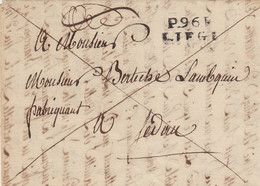 P.96.P.
LIEGE
A Monsieur
Monsieur Bertèche Lambquin
fabriquant
A Sedan